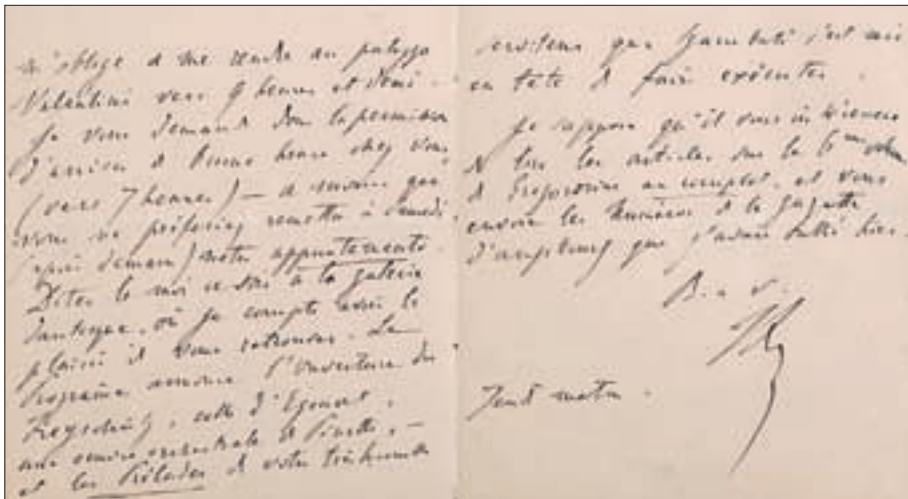 m'oblige à me rendre au palazzo
Valentini vers 9 heures et demi.
Je vous demande donc la permission
d'arriver de bonne heure chez vous
(vers 7 heures) — à moins que
vous ne préfériez remettre à Samedi
(après demain) notre appuntamento.
Dites le moi ce soir à la galerie
Dantesque, où je compte avoir le
plaisir de vous retrouver. Le
Programme annonce l'ouverture du
Freyschütz, celle d'Egmont,
une oeuvre orchestrale de Pinelli, —
et les Préludes de votre très humble
serviteur que Sgambati s'est mis
en tête de faire exécuter.
Je suppose qu'il vous intéressera
de lire les articles sur le 6me volume
de Gregorovius au complet, et vous
envoie les Numéros de la gazette
d'Augsbourg que j'avais hier.
B. a v.
Jeudi matin.